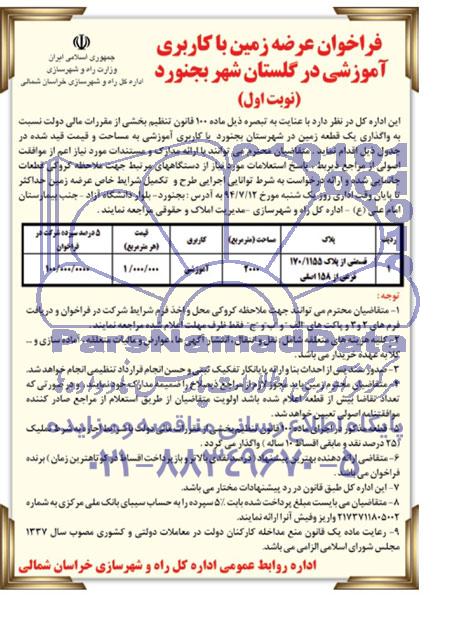 فراخوان عرضه زمین با کاربری
آموزشی در گلستان شهر بجنورد
(نوبت اول)
جمهوری اسلامی ایران
وزارت راه و شهرسازی
اداره کل راه و شهرسازی خراسان شمالی
این اداره کل در نظر دارد با عنایت به تبصره ذیل ماده ۱۰۰ قانون تنظیم بخشی از مقررات مالی دولت نسبت
به واگذاری یک قطعه زمین در شهرستان بجنورد با کاربری آموزشی به مساحت و قیمت قید شده در
جدول ذیل اقدام نماید. متقاضیان محترم می توانند با ارائه مدارک و مستندات مورد نیاز اعم از موافقت
اصولی از مراجع ذیربط، پاسخ استعلامات مورد نیاز از دستگاههای مرتبط جهت ملاحظه کروکی قطعات
جانمایی شده و ارائه درخواست به شرط توانایی اجرایی طرح و تکمیل شرایط خاص عرضه زمین حداکثر
تا پایان وقت اداری روز یک شنبه مورخ ۹۴/۷/۱۲ به آدرس: بجنورد- بلوار دانشگاه آزاد - جنب بیمارستان
امام علی (ع) - اداره کل راه و شهرسازی - مدیریت املاک و حقوقی مراجعه نمایند.
ردیف پلاک مساحت (مترمربع) کاربری قیمت (هر مترمربع) ۵ درصد سپرده شرکت در فراخوان
۱ قسمتی از پلاک ۱۷۰/۱۱۵۵ فرعی از ۱۵۸ اصلی ۲۰۰۰ آموزشی ۱/۰۰۰/۰۰۰ ۱۰۰/۰۰۰/۰۰۰۰
توجه:
۱- متقاضیان محترم می توانند جهت ملاحظه کروکی محل و اخذ فرم شرایط شرکت در فراخوان و دریافت
فرم های ۲ و ۳ و پاکت های "الف" و "ب" و "ج" فقط ظرف مهلت اعلام شده مراجعه نمایند.
۲- کلیه هزینه های متعلقه شامل: نقل و انتقال، انتشار آگهی ها، عوارض و مالیات متعلقه، آماده سازی و ...
کلا به عهده خریدار می باشد.
۳- صدور سند پس از احداث بنا و ارائه پایانکار تفکیک ثبتی و حسن انجام قرارداد تنظیمی انجام خواهد شد.
۴- متقاضیان محترم زمین باید مجوز لازم از مراجع ذیصلاح را ضمیمه مدارک خود نمایند و در صورتی که
تعداد تقاضا بیش از قطعه اعلام شده باشد اولویت متقاضیان از طریق استعلام از مراجع صادر کننده
موافقتنامه اصولی تعیین خواهد شد.
۵- قطعه مذکور در اجرای ماده ۱۰۰ قانون تنظیم بخشی از مقررات مالی دولت با شرط اجاره به شرط تملیک
۲۵٪ درصد نقد و مابقی اقساط ۱۰ ساله) واگذار می گردد.
۶- متقاضی ارائه دهنده بهترین پیشنهاد (درصد نقدی بالاتر و باز پرداخت اقساط در کوتاهترین زمان) برنده
فراخوان می باشد.
۷- این اداره کل طبق قانون در رد پیشنهادات مختار می باشد.
۸- متقاضیان می بایست مبلغ پرداخت شده بابت ۵٪ سپرده را به حساب سیبای بانک ملی مرکزی به شماره
۲۱۷۳۷۱۱۸۰۵۰۰۲ واریز وفیش آنرا ارائه نمایند.
۹- رعایت ماده یک قانون منع مداخله کارکنان دولت در معاملات دولتی و کشوری مصوب سال ۱۳۳۷
مجلس شورای اسلامی الزامی می باشد.
اداره روابط عمومی اداره کل راه و شهرسازی خراسان شمالی
ParsNamadData
۰۲۱-۸۸۳۴۹۶۷۰-۵